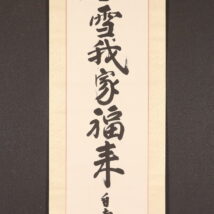 雪我家福来
自